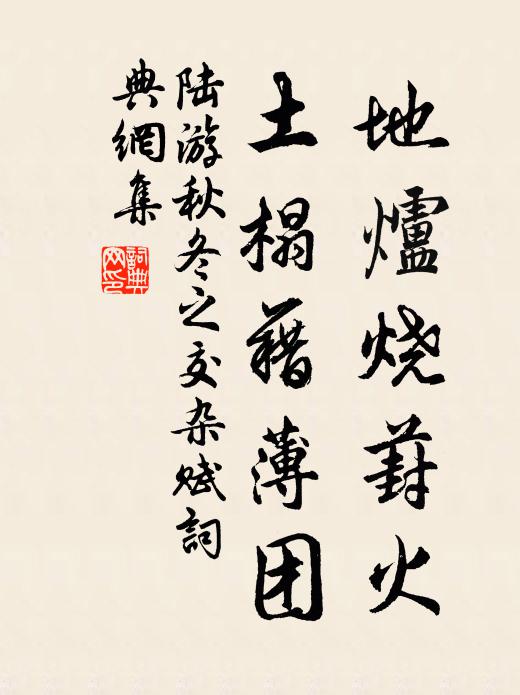 地爐烧葑火
土榻藉薄团
陆游秋冬之交杂赋詞
典網集
詞典
网印